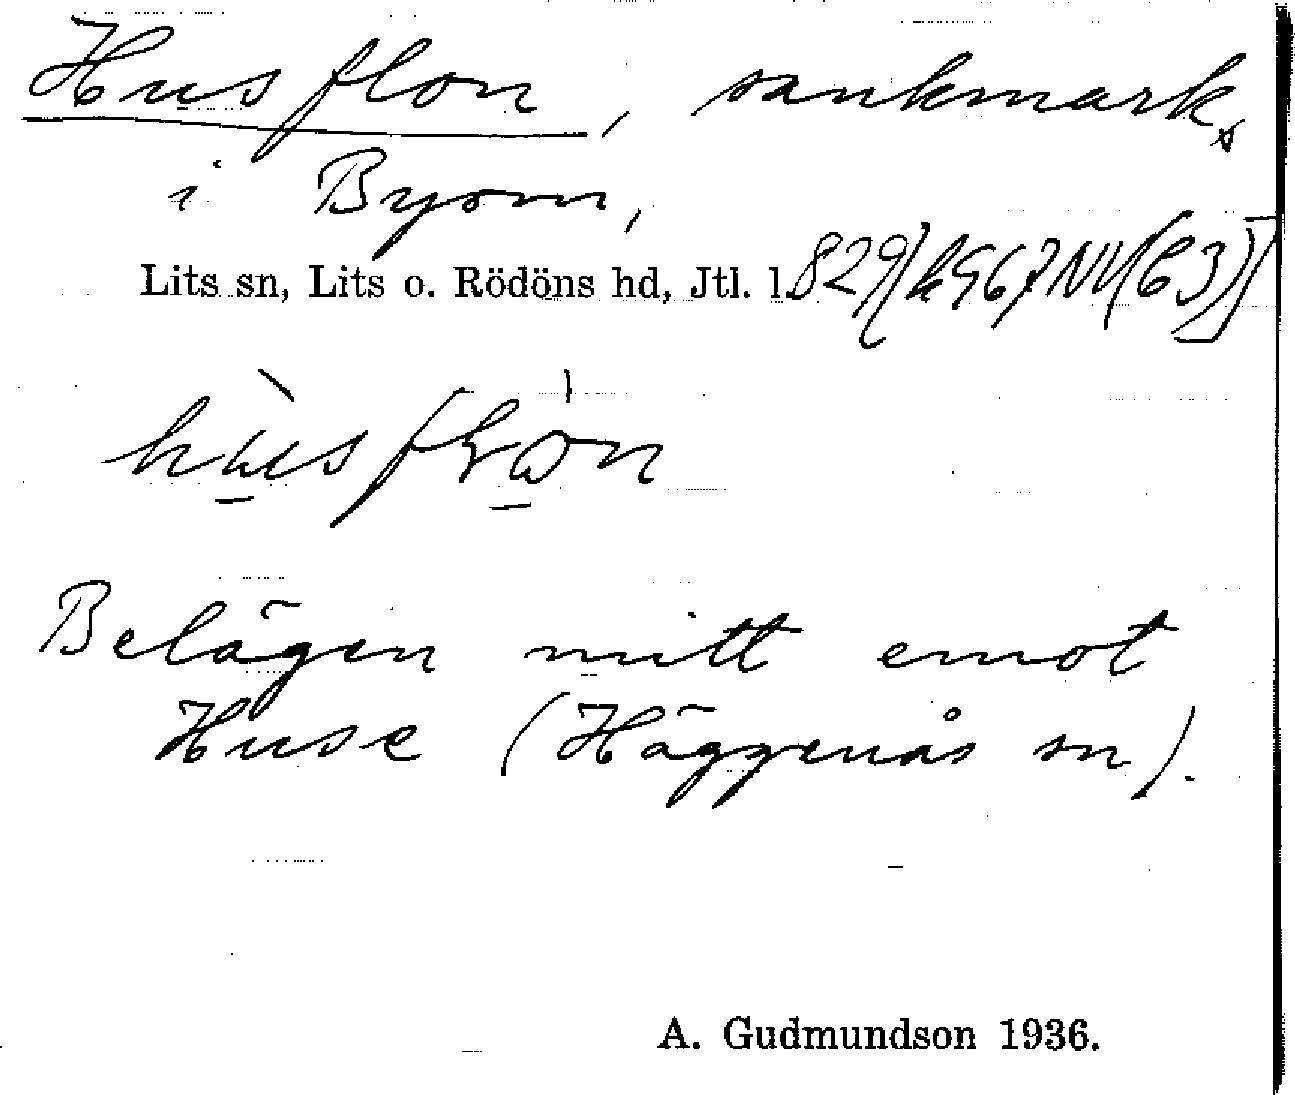 Husflon, sankmark
i Byom,
Lits sn, Lits o. Rödöns hd, Jtl. l. 829
hùsflòn
Belägen mitt emot
Huse (Häggenås sn).
A. Gudmundson 1936.